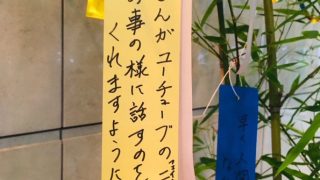 んがユーチューブの
事の様に話すのを
くれますように
早く人